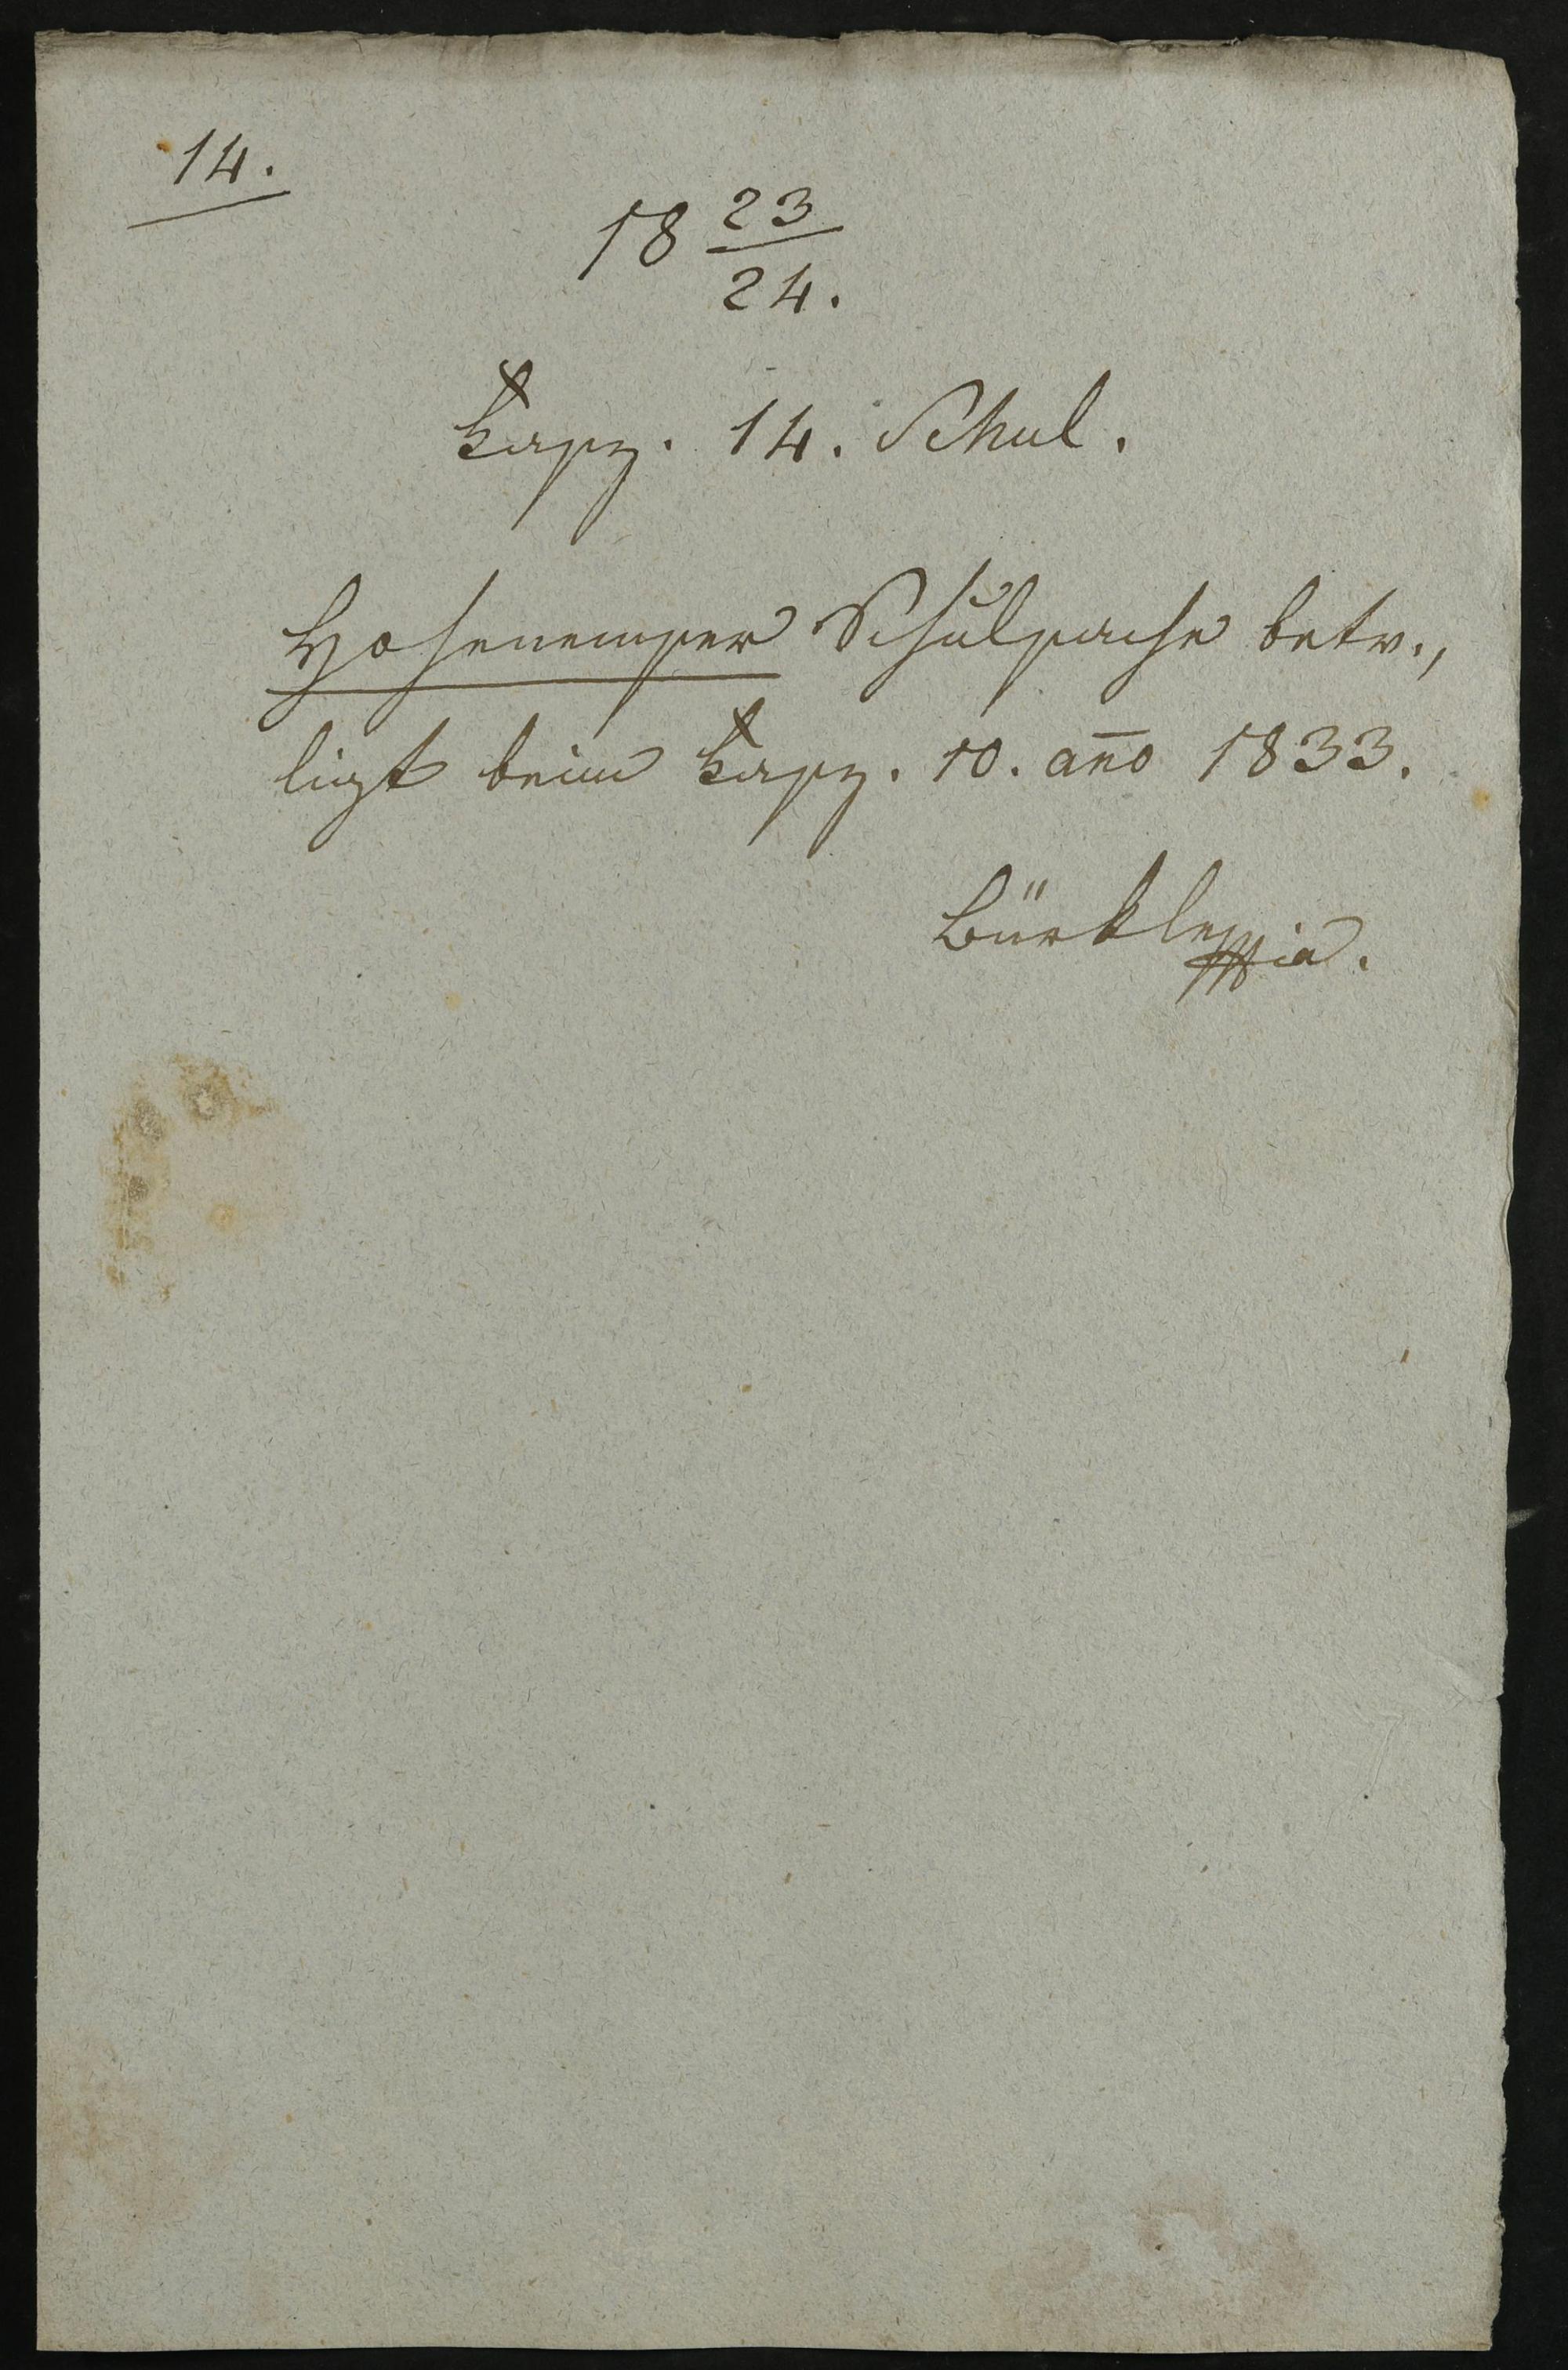 14.
18 23/24.
Fasz. 14. Schul.
Hohenemser Schulsache betr.,
ligt beim Fasz. 10. año 1833.
Bürkle